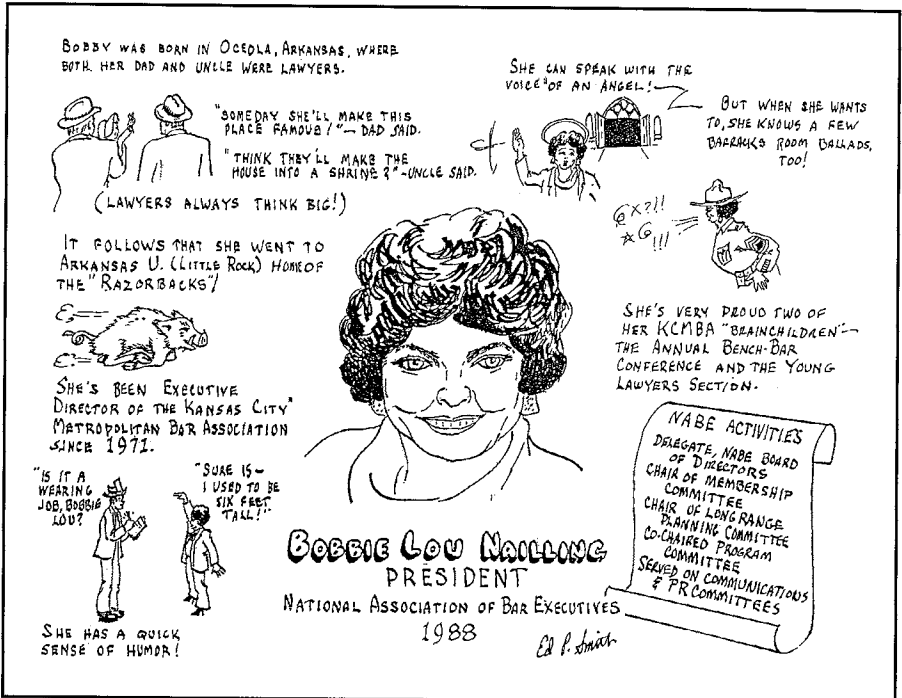 BOBBY WAS BORN IN OCEOLA, ARKANSAS, WHERE
BOTH HER DAD AND UNCLE WERE LAWYERS.
"SOMEDAY SHE'LL MAKE THIS
PLACE FAMOUS!"— DAD SAID.
"THINK THEY'LL MAKE THE
HOUSE INTO A SHRINE?"-UNCLE SAID.
(LAWYERS ALWAYS THINK BIG!)
SHE CAN SPEAK WITH THE
VOICE OF AN ANGEL!
BUT WHEN SHE WANTS
TO, SHE KNOWS A FEW
BARRACKS ROOM BALLADS,
TOO!
@X?!!
*@!!!
IT FOLLOWS THAT SHE WENT TO
ARKANSAS U. (LITTLE ROCK) HOME OF
THE "RAZORBACKS"!
SHE'S BEEN EXECUTIVE
DIRECTOR OF THE KANSAS CITY
METROPOLITAN BAR ASSOCIATION
SINCE 1971.
"IS IT A
WEARING
JOB, BOBBIE
LOU?
"SURE IS—
I USED TO BE
SIX FEET
TALL!"
SHE HAS A QUICK
SENSE OF HUMOR!
SHE'S VERY PROUD TWO OF
HER KCMBA "BRAINCHILDREN"—
THE ANNUAL BENCH-BAR
CONFERENCE AND THE YOUNG
LAWYERS SECTION.
NABE ACTIVITIES
DELEGATE, NABE BOARD
OF DIRECTORS
CHAIR OF MEMBERSHIP
COMMITTEE
CHAIR OF LONG RANGE
PLANNING COMMITTEE
CO-CHAIRED PROGRAM
COMMITTEE
SERVED ON COMMUNICATIONS
& PR COMMITTEES
BOBBIE LOU NAILLING
PRESIDENT
NATIONAL ASSOCIATION OF BAR EXECUTIVES
1988
Ed P. Smith